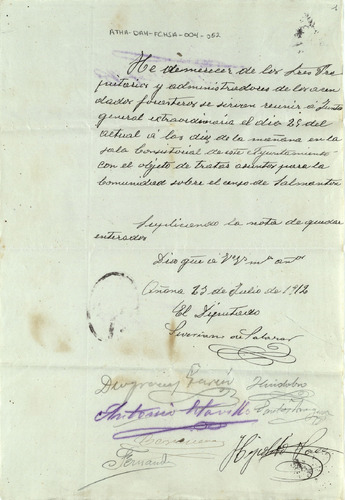 ATHA-DAH-FCHSA-004-052
He de merecer de los Sres Pro
pietarios y administradores de los aren
dados forasteros se sirvan reunir a Junta
general extraordinaria el dia 25 del
actual á las diez de la mañana en la
sala Consistorial de este Ayuntamiento
con el objeto de tratar asuntos para la
comunidad sobre el censo de Salmantón
Suplicando la nota de quedar
enterados
Dios gue a Vs ms añs
Añana 23 de Julio de 1912
El Diputado
de Salazar
Deogracias García
Antonio
Fernand
Hipolito